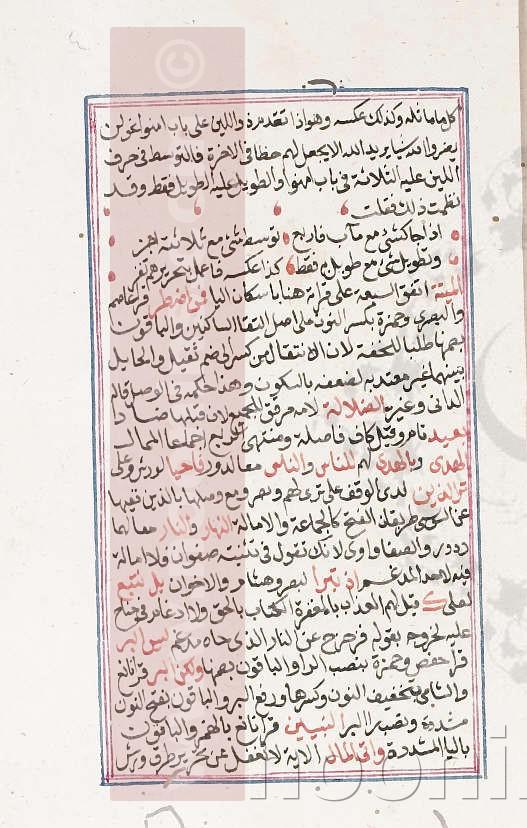 كل ما ماثله وكذلك عكسه وهو اذا تقدم مد واللين على باب امنوا نحو لن
يضروا الله شيا يريد الله الا يجعل لهم حظا في الاخرة فالتوسط في حرف
اللين عليه الثلاثة في باب امنوا والطويل عليه الطويل فقط وقد
نظمت ذلك فقلت
اذا جا كشئ مع مآب فاربع توسط شئ مع ثلاثة اجز
وتطويل شئ مع طويل فقط كذا عكسه فاعمل بتحريرهم تفز
الميتة اتفق السبعة على قراته هنا باسكان اليا فمن اضطر قرا عاصم
والبصري وحمزة بكسر النون على اصل التقا الساكنين والباقون
بضمها طلبا للخفة لان الانتقال من كسر الى ضم ثقيل والحايل
بينهما غير معتد به لضعفه بالسكون وهذا حكمه في الوصل قاله
الداني وغيره الضلالة لامه مرقق للجميع لان قبلها ضادا
بعيد تام وقيل كاف فاصلة ومنتهى الربع اجماعا الممال
الهدى وبالهدى لهم للناس والناس معا لدور فاحيا لورش وعلي
ترى الذين لدى الوقف على ترى لهم وبصر ومع وصلها بالذين فيها
عن السوسي طريقان الفتح كالجماعة والامالة النهار والنار معا لهما
ودور والصفا واوي لانك تقول في تثنيته صفوان فلا امالة
فيه لاحد المدغم اذ تبرا لبصر وهشام والاخوان بل نتبع
لعلي ك قيل لهم العذاب بالمغفرة الكتاب بالحق ولا ادغام في جناح
عليه لخروجه بقوله فزحزح عن النار الذي حاه مدغم ليس البر
قرا حفص وحمزة بنصب الرا والباقون بضمها ولكن البر قرا نافع
والشامي بتخفيف النون وكسرها ورفع البر والباقون بفتح النون
مشددة ونصب را البر النبيين قرا نافع بالهمز والباقون
باليا المشددة واتى المال الاية لا تغفل عن تحرير طرق ورش
noor